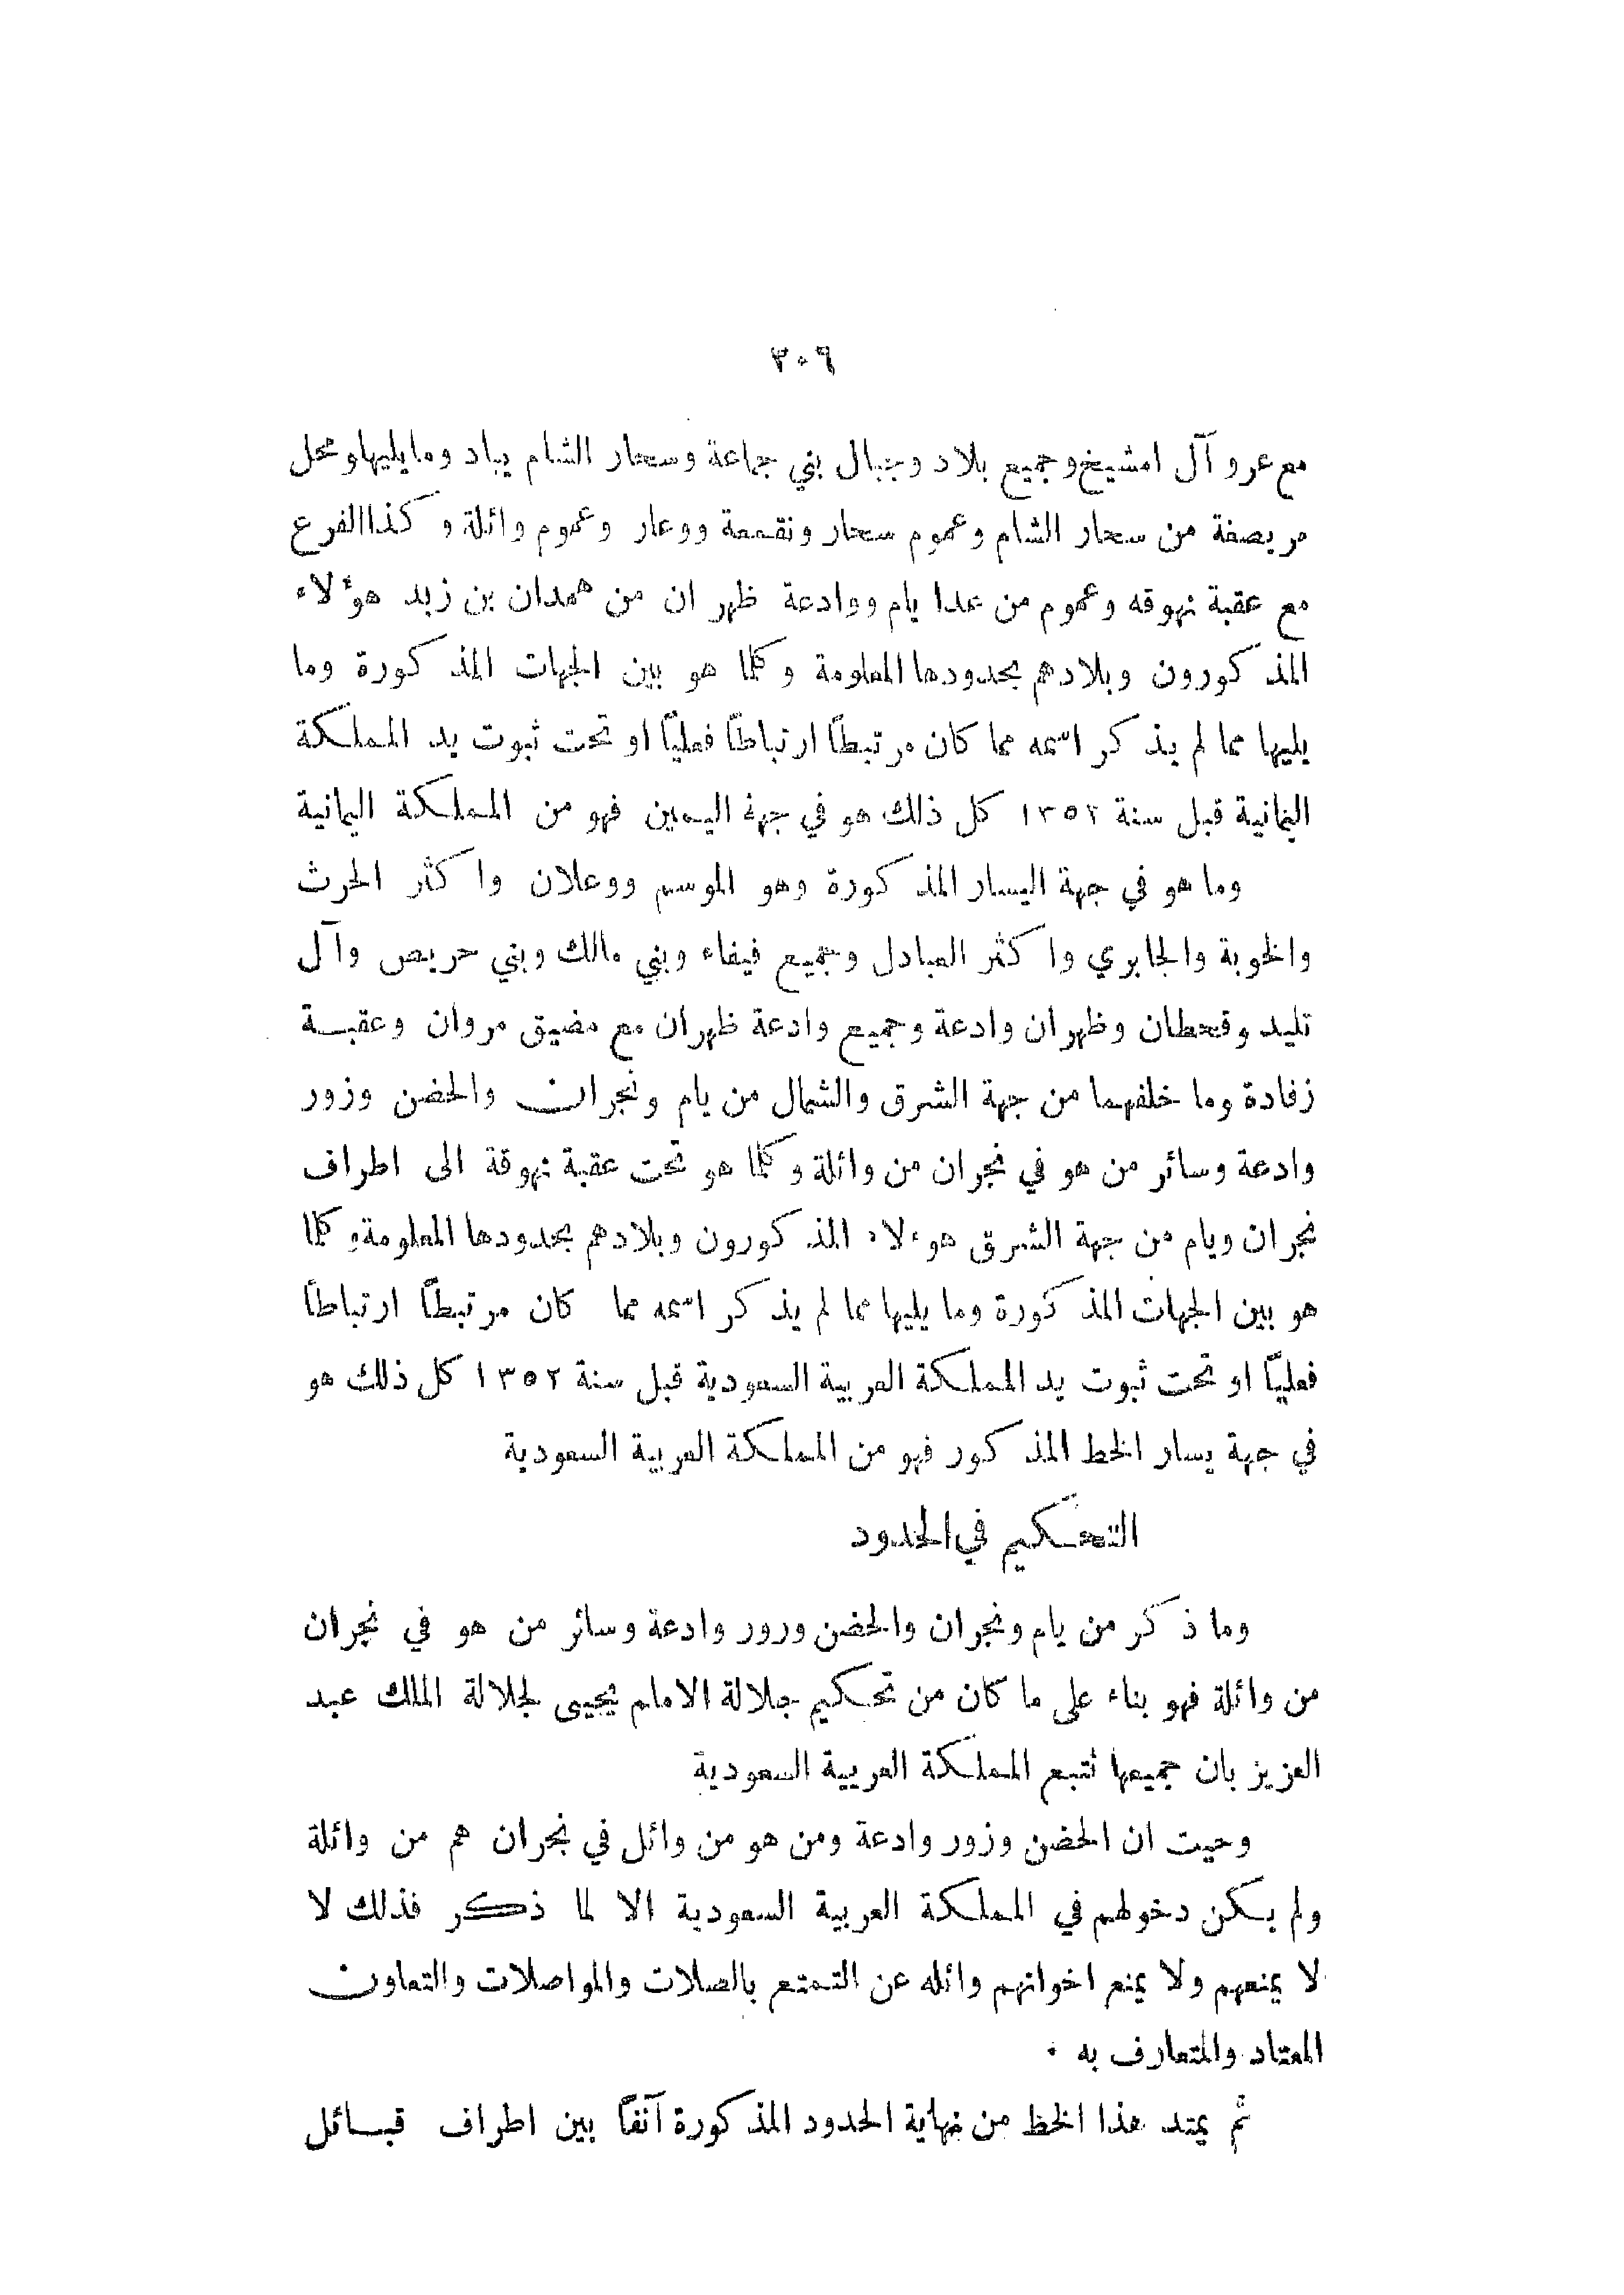 ٣٠٦
مع عرو آل امشيخ وجميع بلاد وجبال بني جماعة وسحار الشام يباد ومايليها ومحل
مريصفة من سحار الشام وعموم سحار ونقعة ووعار وعموم وائلة وكذا الفرع
مع عقبة نهوقه وعموم من عدا يام ووادعة ظهران من همدان بن زيد هؤلاء
المذكورون وبلادهم بحدودها المعلومة وكلما هو بين الجهات المذكورة وما
يليها مما لم يذكر اسمه مما كان مرتبطاً ارتباطاً فعلياً او تحت ثبوت يد المملكة
اليمانية قبل سنة ١٣٥٢ كل ذلك هو في جهة اليمين فهو من المملكة اليمانية
وما هو في جهة اليسار المذكورة وهو الموسم ووعلان واكثر الحرث
والخوبة والجابري واكثر العبادل وجميع فيفاء وبني مالك وبني حريص وآل
تليد وقحطان وظهران وادعة وجميع وادعة ظهران مع مضيق مروان وعقبة
رفادة وما خلفهما من جهة الشرق والشمال من يام ونجران والحضن وزور
وادعة وسائر من هو في نجران من وائلة وكلما هو تحت عقبة نهوقة الى اطراف
نجران ويام من جهة الشرق هوءلاء المذكورون وبلادهم بحدودها المعلومة وكلما
هو بين الجهات المذكورة وما يليها مما لم يذكر اسمه مما كان مرتبطاً ارتباطاً
فعلياً او تحت ثبوت يد المملكة العربية السعودية قبل سنة ١٣٥٢ كل ذلك هو
في جهة يسار الخط المذكور فهو من المملكة العربية السعودية
التحكيم في الحدود
وما ذكر من يام ونجران والحضن وزور وادعة وسائر من هو في نجران
من وائلة فهو بناء على ما كان من تحكيم جلالة الامام يحيى لجلالة الملك عبد
العزيز بان جميعها تتبع المملكة العربية السعودية
وحيت ان الحضن وزور وادعة ومن هو من وائل في نجران هم من وائلة
ولم يكن دخولهم في المملكة العربية السعودية الا لما ذكر فذلك لا
لا يمنعهم ولا يمنع اخوانهم وائله عن التمتع بالصلات والمواصلات والتعاون
المعتاد والمتعارف به ٠
ثم يمتد هذا الخط من نهاية الحدود المذكورة آنفاً بين اطراف قبائل